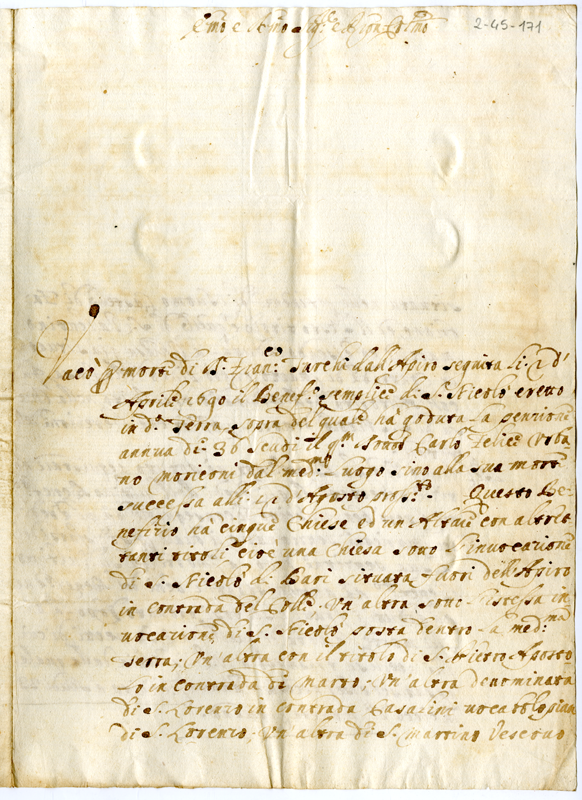 2-45-171
Em̃o e R̃mo Sigr̃ e Pron̄ Col̃mo
Vacò p morte di D. Franc.co Turchi dall'Apiro seguita li 2 d'
Aprile 1690 il Benef.o semplice di S. Nicolò eretto
in d.a Terra, sopra del quale hà goduta la penzione
annua di 36 scudi il qm̃ Carlo Felice Urba
no Moriconi dal med.mo luogo sino alla sua morte
successa alli d'Agosto pross.to. Questo Be-
nefizio hà cinque Chiese ed un Altare con altret
tanti titoli cioè una Chiesa sotto l'invocazione
di S. Nicolò di Bari situata fuori dell'Apiro
in contrada del Colle, Un'altra sotto l'istessa in
vocazione di S. Nicolò posta dentro la med.ma
Terra; Un'altra con il titolo di S. Pietro Aposto
lo in contrada di Marzo; Un'altra denominata
di S. Lorenzo in contrada Casalini vocabolo pian
di S. Lorenzo; Un'altra di S. Martino Vescovo